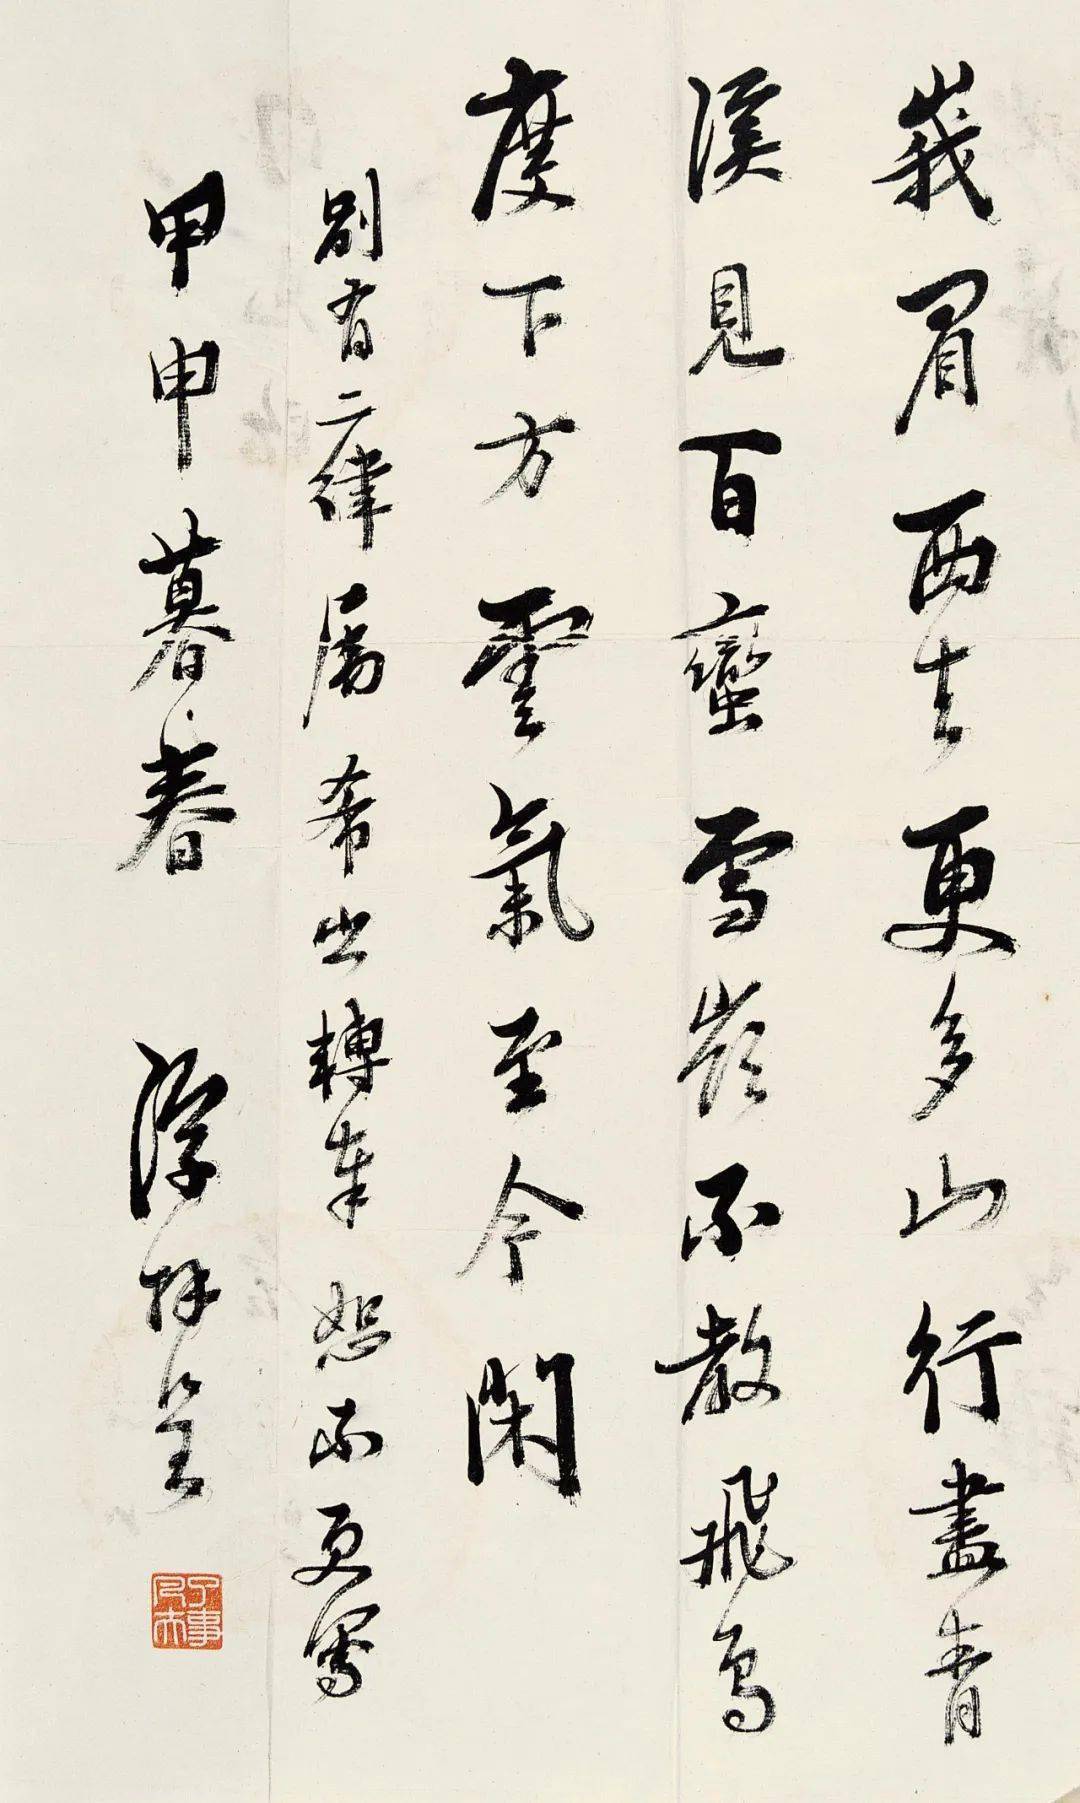 峩眉西去更多山行盡青
溪見百蠻雪嶺不教飛鳥
度下方雲氣至今閑
別有二律屬希出轉奉恕不更寫
甲申暮春 淳拜呈
了事